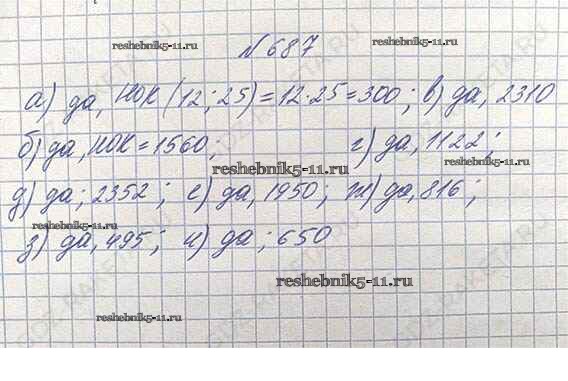 reshebnik5-11.ru
reshebnik5-11.ru
№687
а) да, НОК (12; 25) = 12·25 = 300; в) да, 2310
б) да, НОК = 1560; г) да, 1122;
reshebnik5-11.ru
reshebnik5-11.ru
д) да; 2352; е) да, 1950; ж) да, 816;
reshebnik5-11.ru
з) да, 495; и) да; 650
reshebnik5-11.ru
reshebnik5-11.ru